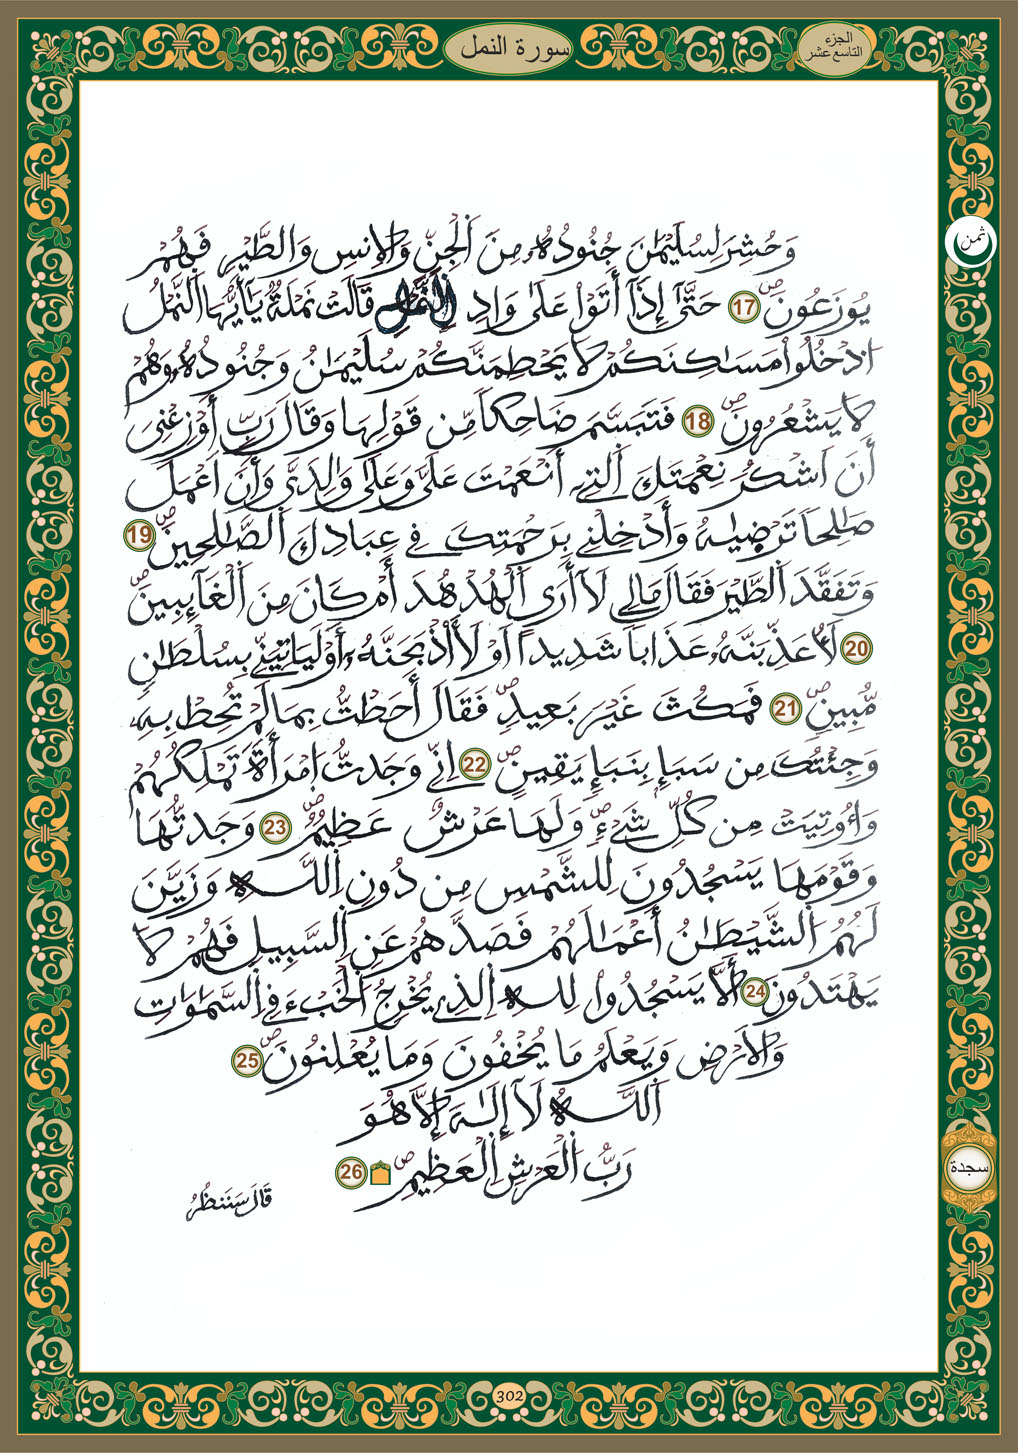 الجزء
التاسع عشر
سورة النمل
ثمن
وَحُشِرَ لِسُلَيْمَٰنَ جُنُودُهُۥ مِنَ اَلْجِنِّ وَالِانسِ وَالطَّيْرِ فَهُمْ
يُوزَعُونَۖ 17 حَتَّىٰٓ إِذَآ أَتَوْاْ عَلَىٰ وَادِ اِلنَّمْلِ قَالَتْ نَمْلَةٌ يَٰٓأَيُّهَا اَلنَّمْلُ
اُدْخُلُواْ مَسَٰكِنَكُمْ لَا يَحْطِمَنَّكُمْ سُلَيْمَٰنُ وَجُنُودُهُۥ وَهُمْ
لَا يَشْعُرُونَۖ 18 فَتَبَسَّمَ ضَاحِكاً مِّن قَوْلِهَا وَقَالَ رَبِّ أَوْزِعْنِىٓ
أَنَ اَشْكُرَ نِعْمَتَكَ اَلتِےٓ أَنْعَمْتَ عَلَىَّ وَعَلَىٰ وَٰلِدَىَّ وَأَنَ اَعْمَلَ
صَٰلِحاً تَرْضَيٰهُ وَأَدْخِلْنِے بِرَحْمَتِكَ فِے عِبَادِكَ اَلصَّٰلِحِينَۖ 19
وَتَفَقَّدَ اَلطَّيْرَ فَقَالَ مَالِے لَآ أَرَى اَلْهُدْهُدَ أَمْ كَانَ مِنَ اَلْغَآئِبِينَۖ
20 لَأُعَذِّبَنَّهُۥ عَذَاباً شَدِيداً اَوْ لَأَاْذْبَحَنَّهُۥٓ أَوْ لَيَاتِيَنِّے بِسُلْطَٰنٍ
مُّبِينٍۖ 21 فَمَكُثَ غَيْرَ بَعِيدٍۖ فَقَالَ أَحَطتُ بِمَا لَمْ تُحِطْ بِهِۦ
وَجِئْتُكَ مِن سَبَإٍ بِنَبَإٍ يَقِينٍۖ 22 اِنِّے وَجَدتُّ اُمْرَأَةً تَمْلِكُهُمْ
وَأُوتِيَتْ مِن كُلِّ شَےْءٍۖ وَلَهَا عَرْشٌ عَظِيمٌۖ 23 وَجَدتُّهَا
وَقَوْمَهَا يَسْجُدُونَ لِلشَّمْسِ مِن دُونِ اِللَّهِ وَزَيَّنَ
لَهُمُ اُلشَّيْطَٰنُ أَعْمَٰلَهُمْ فَصَدَّهُمْ عَنِ اِلسَّبِيلِ فَهُمْ لَا
يَهْتَدُونَ 24 أَلَّا يَسْجُدُواْ لِلهِ اِلذِے يُخْرِجُ اُلْخَبْءَ فِے اِلسَّمَٰوَٰتِ
وَالَارْضِ وَيَعْلَمُ مَا يُخْفُونَ وَمَا يُعْلِنُونَۖ 25
اَللَّهُ لَآ إِلَٰهَ إِلَّا هُوَ
رَبُّ اُلْعَرْشِ اِلْعَظِيمِۖ 26
سجدة
قَالَ سَنَنظُرُ
302